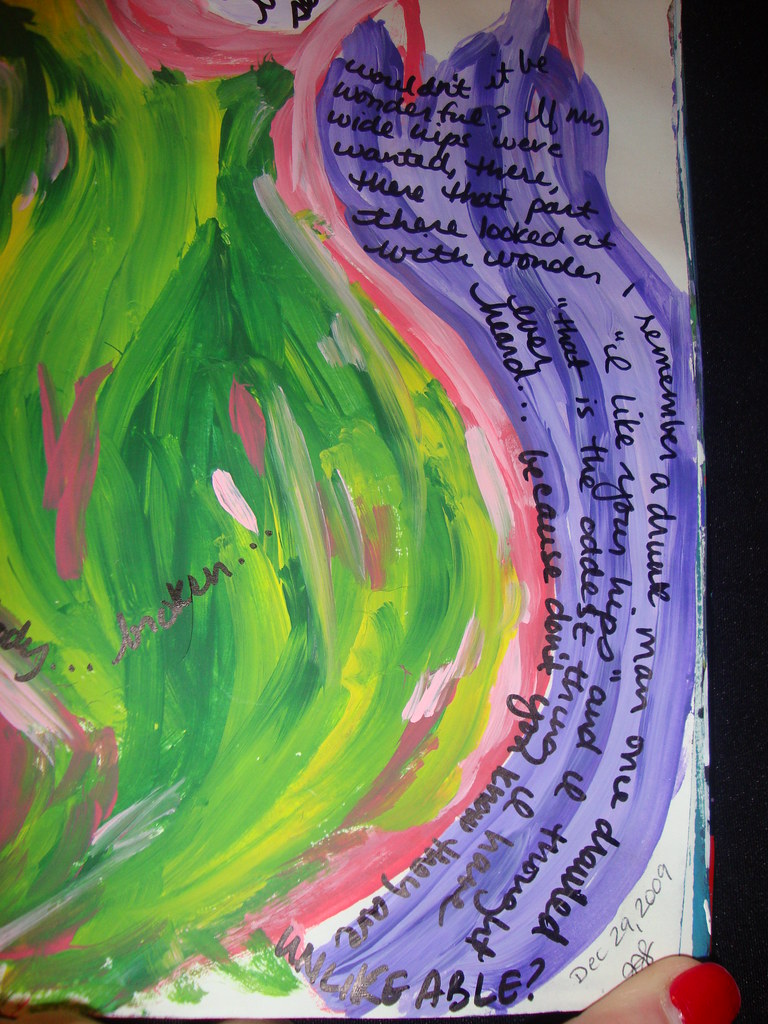 wouldn't it be
wonderful? If my
wide hips were
wanted, there,
there that part
there looked at
with wonder
I remember a drunk man once drawled
"I like your hips" and I thought
"that is the oddest thing I have
ever
heard... because don't you know they are
UNLIKEABLE?
broken...
Dec 29, 2009